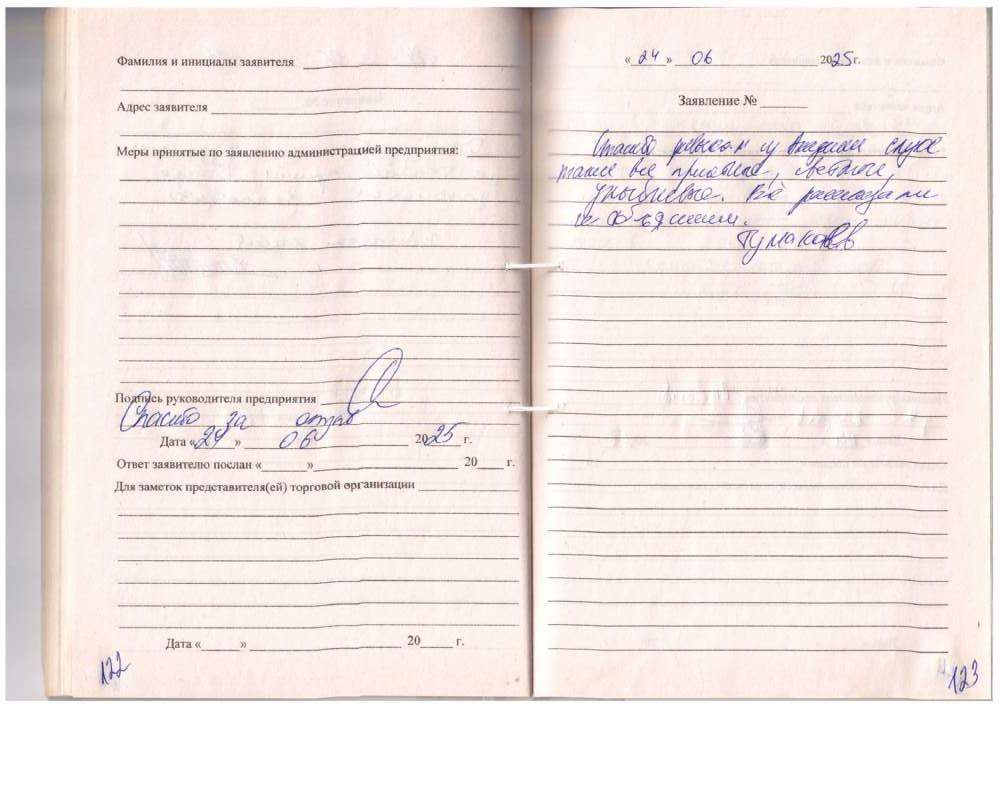 Фамилия и инициалы заявителя
Адрес заявителя
Меры принятые по заявлению администрацией предприятия:
Подпись руководителя предприятия
Спасибо за отзыв
Дата «24» 06 2025 г.
Ответ заявителю послан «» 20 г.
Для заметок представителя(ей) торговой организации
Дата «» 20 г.
122
«24» 06 2025 г.
Заявление №
Спасибо
такие все приятные, светлые,
улыбчивые. Всё рассказали
и объяснили.
123